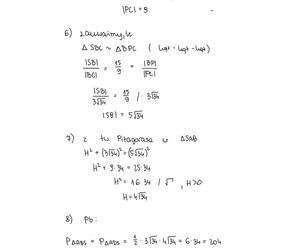 |PC| = 9
6) zauważmy, że
Δ SBC ~ Δ BPC ( kąt - kąt - kąt )
|SB| / |BC| = 15/9 = |BP| / |PC|
|SB| / 3√34 = 15/9 / · 3√34
|SB| = 5√34
7) z tw. Pitagorasa w ΔSAB
H² + (3√34)² = (5√34)²
H² + 9·34 = 25·34
H² = 16·34 / √ , H>0
H = 4√34
8) Pb:
P ΔABS = P ΔADS = 1/2 · 3√34 · 4√34 = 6·34 = 204